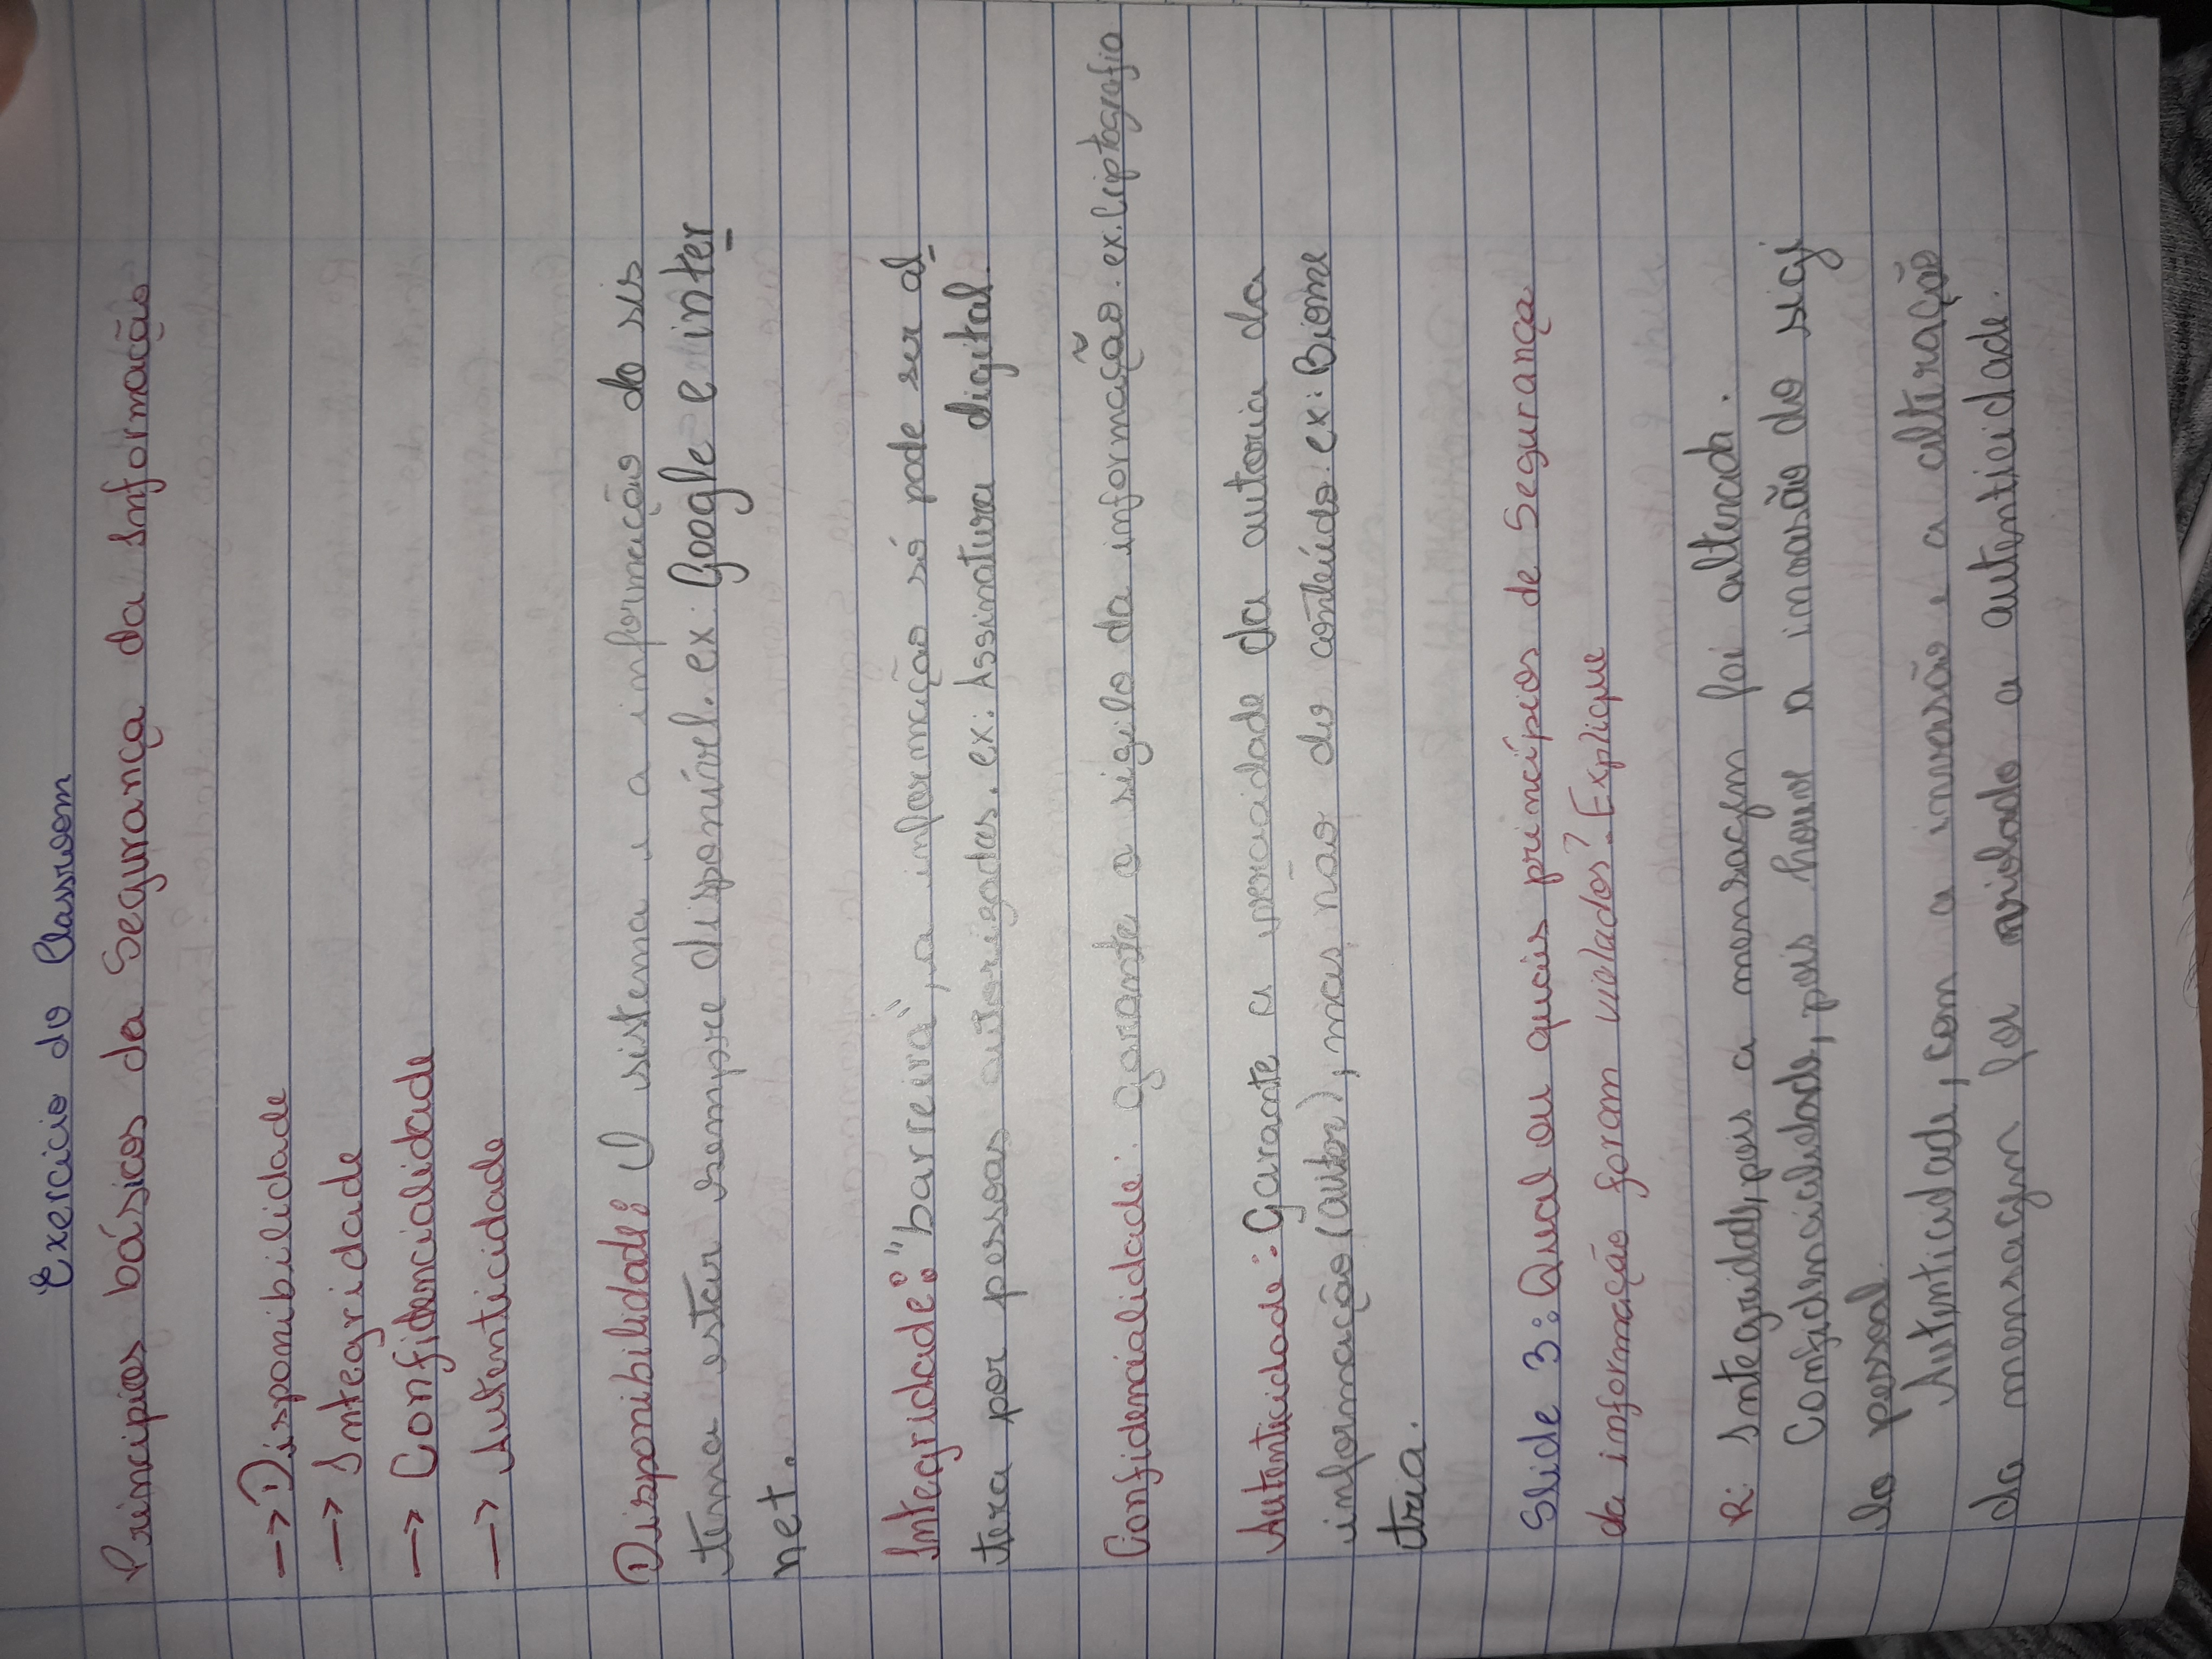 Exercicio do Classroom
Principios básicos da Segurança da Informação
-> Disponibilidade
-> Integridade
-> Confidencialidade
-> Autenticidade
Disponibilidade: O sistema e a informação do sis
tema estar sempre disponível. ex: Google e inter
net.
Integridade: "barreira", a informação só pode ser al
tera por pessoas autorizadas. ex: Assinatura digital.
Confidencialidade: garante o sigilo da informação. ex. Criptografia
Autenticidade: Garante a veracidade da autoria da
informação (autor), mas não do conteúdo. ex: Biome
tria.
Slide 3: Qual ou quais princípios de Segurança
da informação foram violados? Explique
R: Integridade, pois a mensagem foi alterada.
Confidencialidade, pois houve a invasão do sigi
lo pessoal.
Autenticidade, com a invasão e a alteração
da mensagem foi violado a autenticidade.